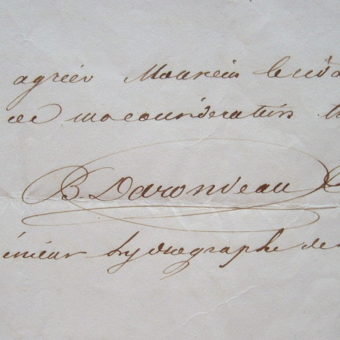 agréer Monsieur
de ma considération
B. Darondeau
énieur hydrographe de